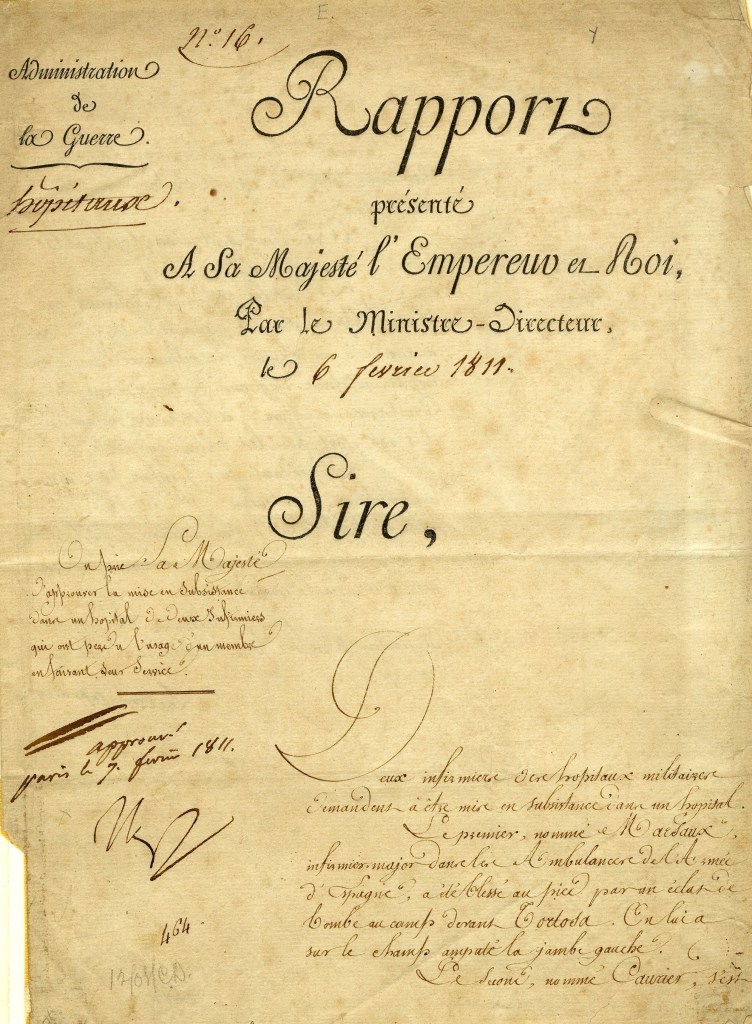 E.
nº 16.
Administration
de
la Guerre.
hôpitaux.
Rapport
présenté
A Sa Majesté l'Empereur et Roi,
Par le Ministre-Directeur,
le 6 fevrier 1811.
Sire,
On prie Sa Majesté
d'approuver la mise en subsistance
dans un hopital de deux Infirmiers
qui ont perdu l'usage d'un membre
en faisant leur Service.
approuvé
paris le 7. fevrier 1811.
464.
Deux infirmiers des hopitaux militaires
demandent à être mis en subsistance dans un hopital.
Le premier, nommé Marsaux,
infirmier-major dans les Ambulances de l'Armée
d'Espagne, a été blessé au pied par un éclat de
bombe au camp devant Tortosa. On lui a
sur le champ amputé la jambe gauche.
Le second, nommé Caurier, s'est